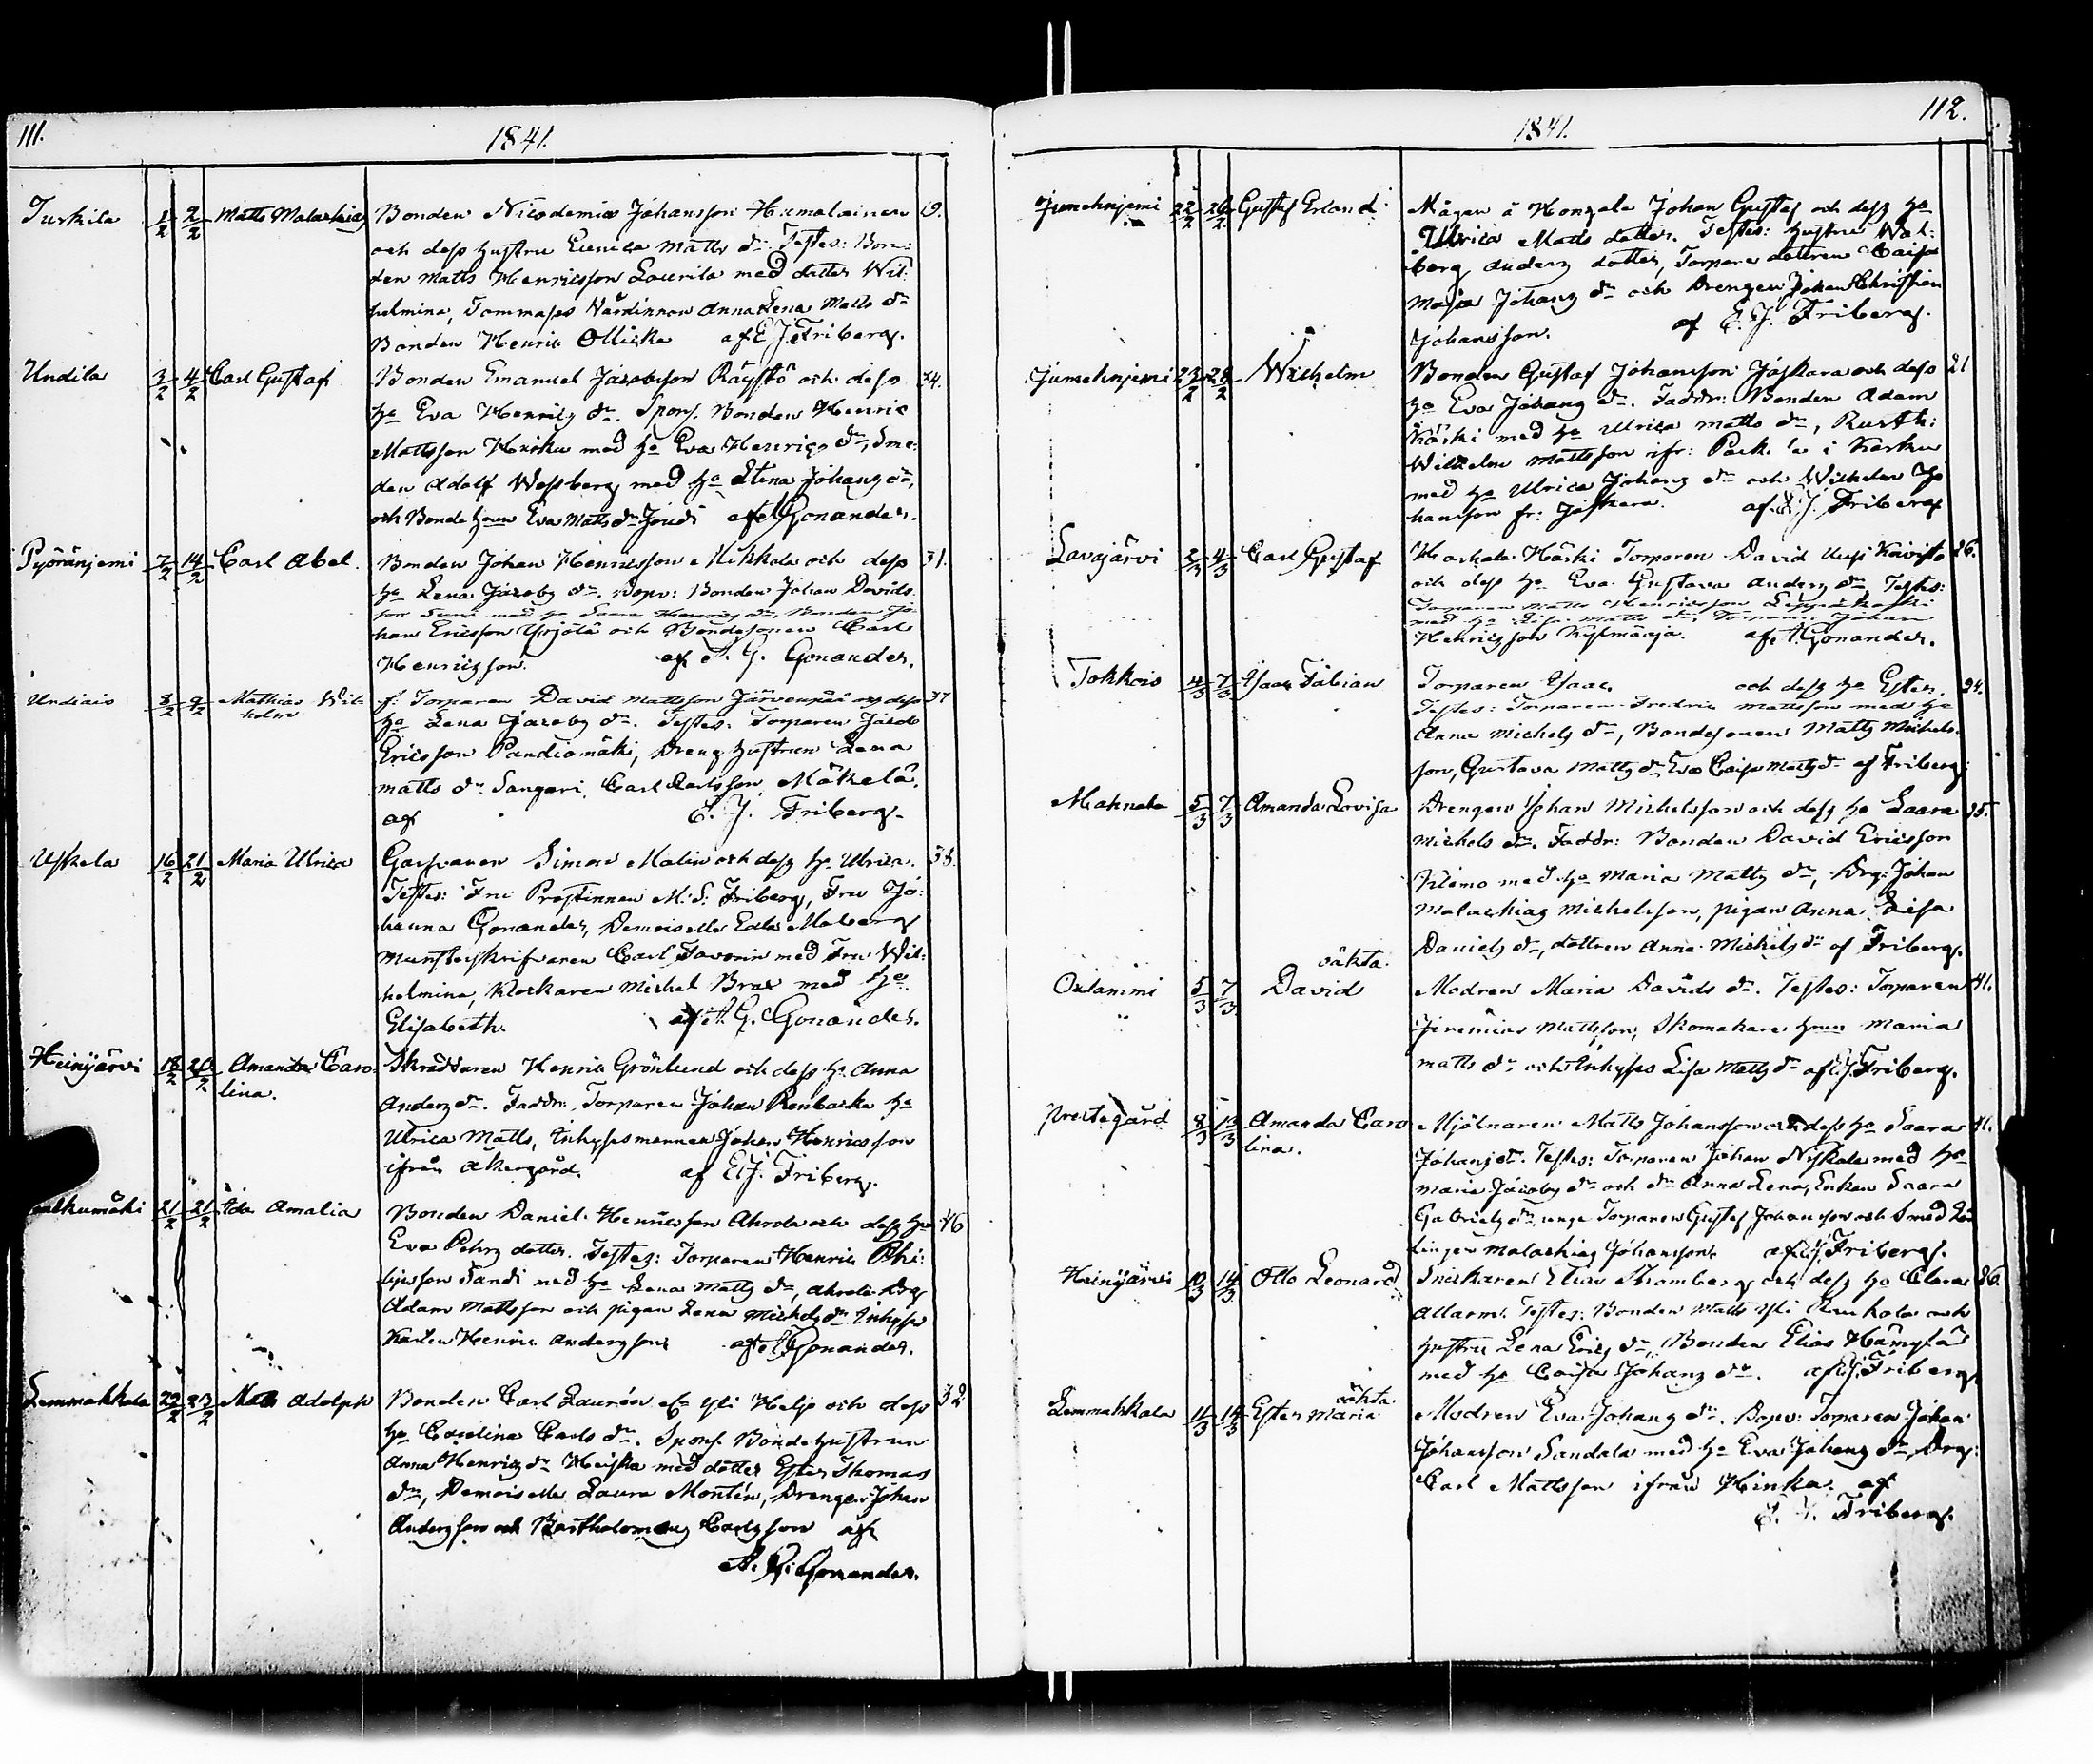 111.
1841.
Turkila 1/2 2/2 Matts Malachias Bonden Nicodemus Johansson Humalainen 19.
och dess hustru Eunica Matts dr. Testes: Bon:
den Matts Henricsson Laurila med dotter Wil:
helmina, Tommases Värdinnan Anna Lena Matts dr
Bonden Henric Olliska af E. J. Friberg.
Undila 3/2 4/2 Carl Gustaf Bonden Emanuel Jacobsson Räystö och dess 34.
ho Eva Henrics dr. Spons. Bonden Henric
Mattsson med ho Eva Henrics dr, Sme:
den Adolf Wessberg med ho Stina Johans dr,
och Bonde Eva Matts dr Joudi af A. G. Gonander.
Pyöränjemi 7/2 14/2 Carl Abel. Bonden Johan Henricsson Mikkola och dess 31.
ho Lena Jacobs dr. Dopv: Bonden Johan Davids
son med ho Saara Henrics dr, Bonden Jo
han Ericsson Yrjölä och Bondesonen Carl
Henricsson. af A. G. Gonander.
8/2 9/2 Mathias Wil: f. Torparen David Mattsson Järvenpää och dess 37
helm ho Lena Jacobs dr. Testes: Torparen Jacob
Ericsson Pandiamäki, Dreng hustrun Lena
Matts dr Sangari, Carl Carlsson Mäkelä.
af E. J. Friberg.
Uskela 16/2 21/2 Maria Ulrica Garfvaren Simon Malin och dess ho Ulrica. 38.
Testes: Fru Prostinnan M: S: Friberg, Fru Jo:
hanna Gonander, Demoiselle Edla Moberg
Munsterskrifvaren Carl Favorin med Fru Wil:
helmina, Klockaren Michel Brax med ho
Elisabeth. af A. G. Gonander.
Heinijärvi 18/2 20/2 Amanda Caro: Skräddaren Henric Grönlund och dess ho Anna
lina. Anders dr. Faddr. Torparen Johan Renbacka ho
Ulrica Matts, Inhyses mannen Johan Henricsson
ifrån Åkergård. af E. J. Friberg.
21/2 21/2 Ida Amalia Bonden Daniel Henricsson Ahrola och dess ho 46
Eva Pehrs dotter. Testes: Torparen Henric Phi:
lipsson Sandi med ho Lena Matts dr, Ahrola Drg
Adam Mattsson och pigan Lena Michels dr Inhyses
Karlen Henric Andersson af A. G. Gonander.
Lemmakkala 22/2 23/2 Adolph Bonden Carl Laurén Yli Heljo och dess 32
ho Carolina Carls dr. Spons. Bondehustrun
Anna Henrics dr Heiska med dotter Ester Thomas
dr, Demoiselle Laura Montén, Drengen Johan
Andersson och Bartholomeus Carlsson af
A. G. Gonander.
112.
1841.
22/2 26/2 Gustaf Erland Mågen å Honzala Johan Gustaf och dess ho
Ulrica Matts dotter. Testes: hustru Wal:
borg Anders dotter, Torpare dottren Caisa
Maja Johans dr och Drengen Johan Christian
Johansson. af E. J. Friberg.
23/2 28/2 Wilhelm Bonden Gustaf Johansson Jaskara och dess 21
ho Eva Johans dr. Faddr: Bonden Adam
Käski med ho Ulrica Matts dr, Rusth:
Wilhelm Mattsson ifr: i Karku
med ho Ulrica Johans dr och Wilhelm Jo
hansson fr: Jaskara. af E. J. Friberg
Savojärvi 2/3 4/3 Carl Gustaf Torparen David Uusi Koivisto 26.
och dess ho Eva Gustava Anders dr Testes:
Torparen Matts Henricsson Leppäkoski
med ho Lisa Matts dr, Torparen Johan
Henricsson af A. Gonander.
Tokkois 4/3 7/3 Isaac Fabian Torparen Isaac och dess ho Ester. 24.
Testes: Torparen Fredric Mattsson med ho
Anna Michels dr, Bondesonen Matts Michels:
son, Gustava Matts dr Eva Caisa Matts dr af Friberg.
Mahnala 5/3 7/3 Amanda Lovisa Drengen Johan Michelsson och dess ho Saara 25.
Michels dr. Faddr: Bonden David Ericsson
Klemo med ho Maria Matts dr, Drg: Johan
Malachias Michelsson, pigan Anna Lisa
Daniels dr, dottren Anna Michels dr af Friberg.
oäkta.
5/3 7/3 David Modren Maria Davids dr. Testes: Torparen 41.
Jeremias Mattsson, Skomakare Maria
Matts dr och Inhyses Lisa Matts dr af E. J. Friberg.
Prestegård 8/3 13/3 Amanda Caro Mjölnaren Matts Johansson och dess ho Saara 41.
lina. Johans dr. Testes: Torparen Johan Niskala med ho
Maria Jacobs dr och dr Anna Lena, Enkan Saara
Gabriels dr, unge Torparen Gustaf Johansson och Smed Lär
lingen Malachias Johansson. af E. J. Friberg.
Heinijärvi 10/3 14/3 Otto Leonard Snickaren Elias Stromberg och dess ho Clara 26.
Testes: Bonden Matts Yli och
hustru Lena Erics dr, Bonden Elias Hämylä
med ho Caisa Johans dr. af E. J. Friberg
oäkta
Lemmakkala 11/3 14/3 Ester Maria Modren Eva Johans dr. Dopv: Torparen Johan
Johansson Sandala med ho Eva Johans dr, Drg:
Carl Mattsson ifrån Hinka. af
E. J. Friberg.